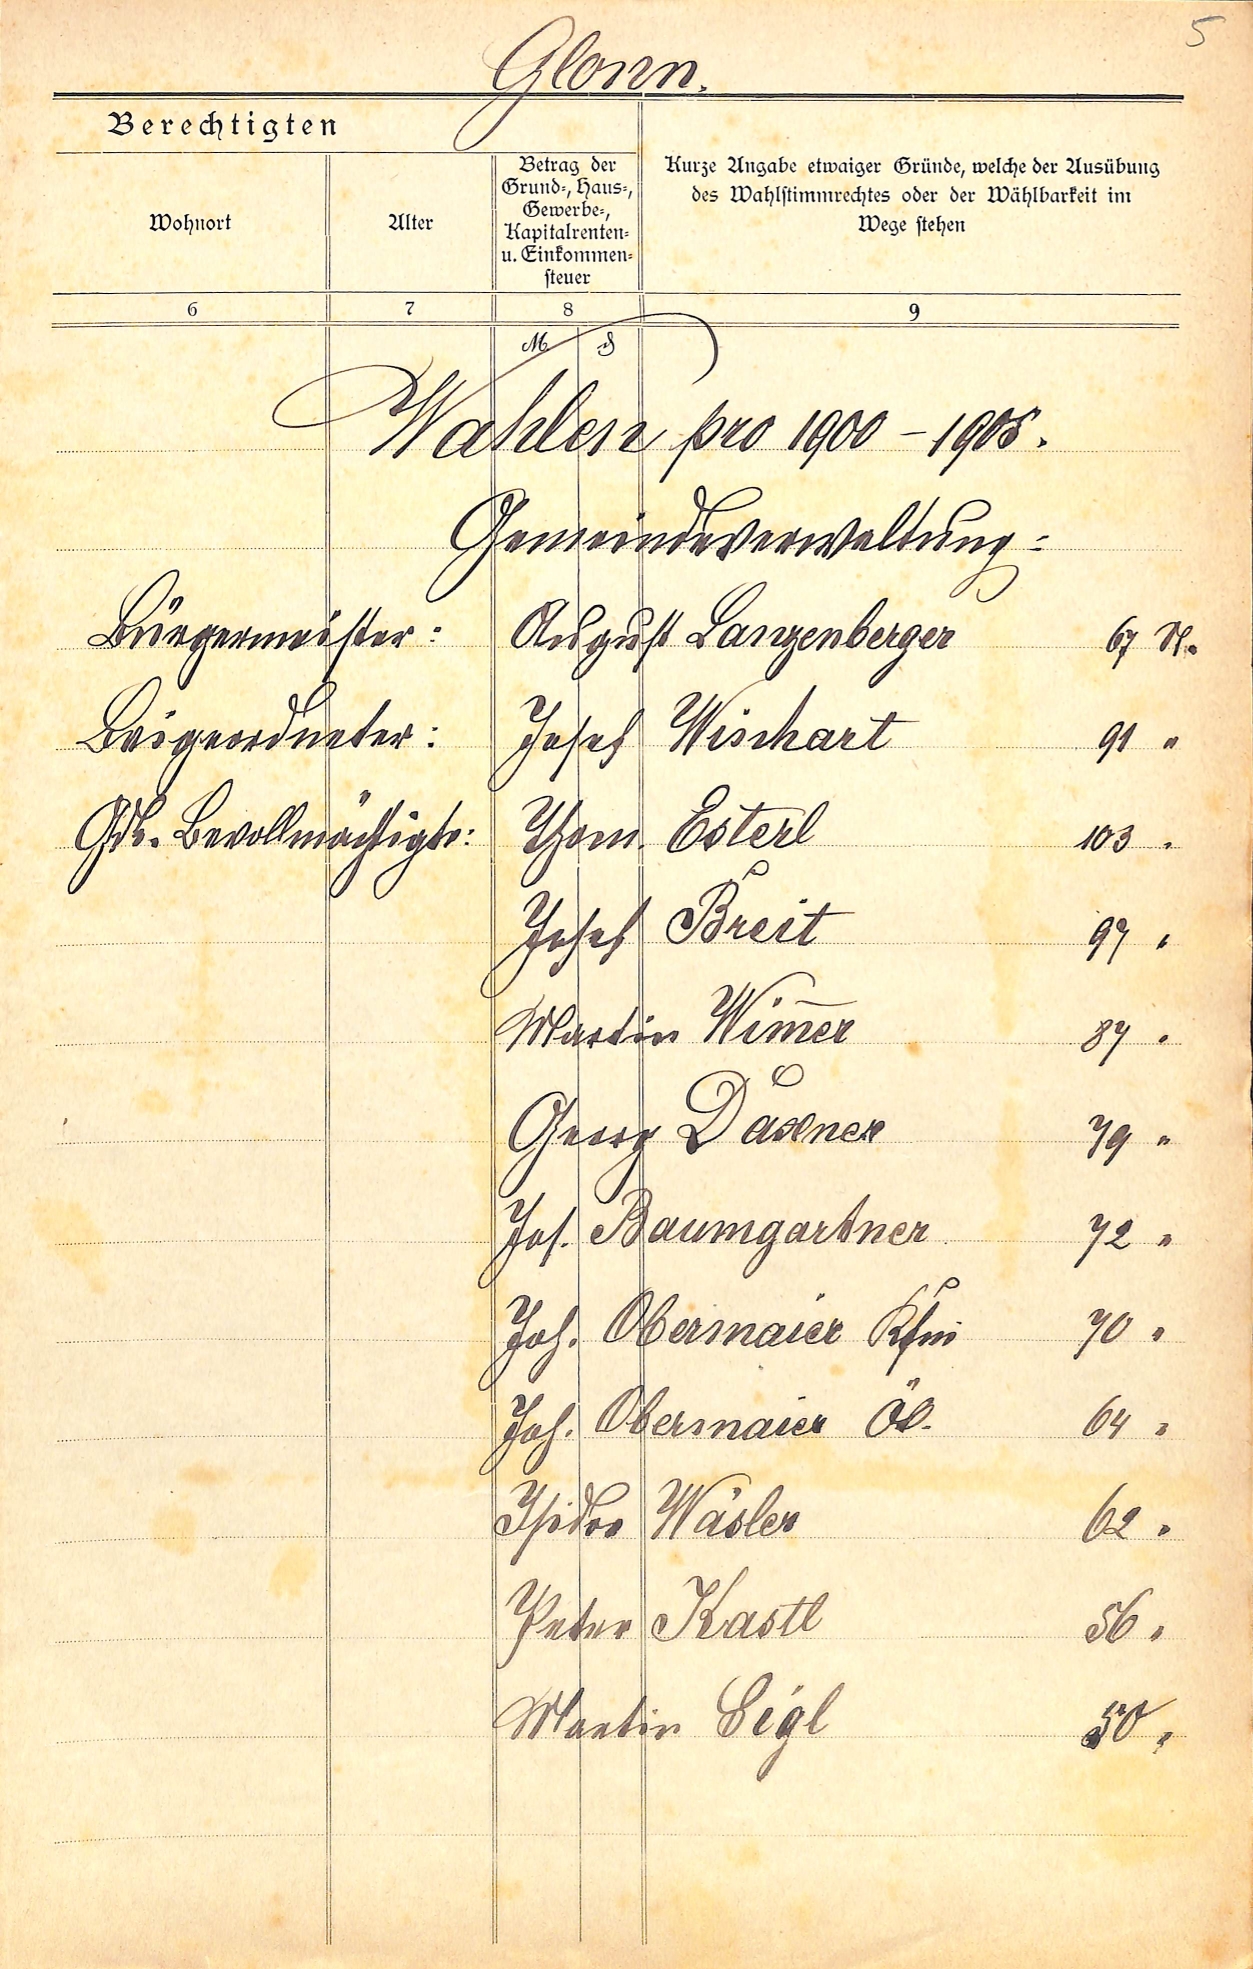 5
Glonn.
Berechtigten
Wohnort
Alter
Betrag der
Grund-, Haus-,
Gewerbe-,
Kapitalrenten-
u. Einkommen-
steuer
Kurze Angabe etwaiger Gründe, welche der Ausübung
des Wahlstimmrechtes oder der Wählbarkeit im
Wege stehen
6 7 8 9
M ₰
Wahlen pro 1900 – 1905.
Gemeindeverwaltung:
Bürgermeister: August Lanzenberger 67 St.
Beigeordneter: Josef Wischart 91 "
Gde. Bevollmächtigte: Thom. Esterl 103 "
Josef Breit 97 "
Martin Wim̅er 87 "
Georg Daxner 79 "
Jos. Baumgartner 72 "
Joh. Obermaier Kfm 70 "
Joh. Obermaier Ök. 64 "
Isidor Wäsler 62 "
Peter Kastl 56 "
Martin Sigl 50 "